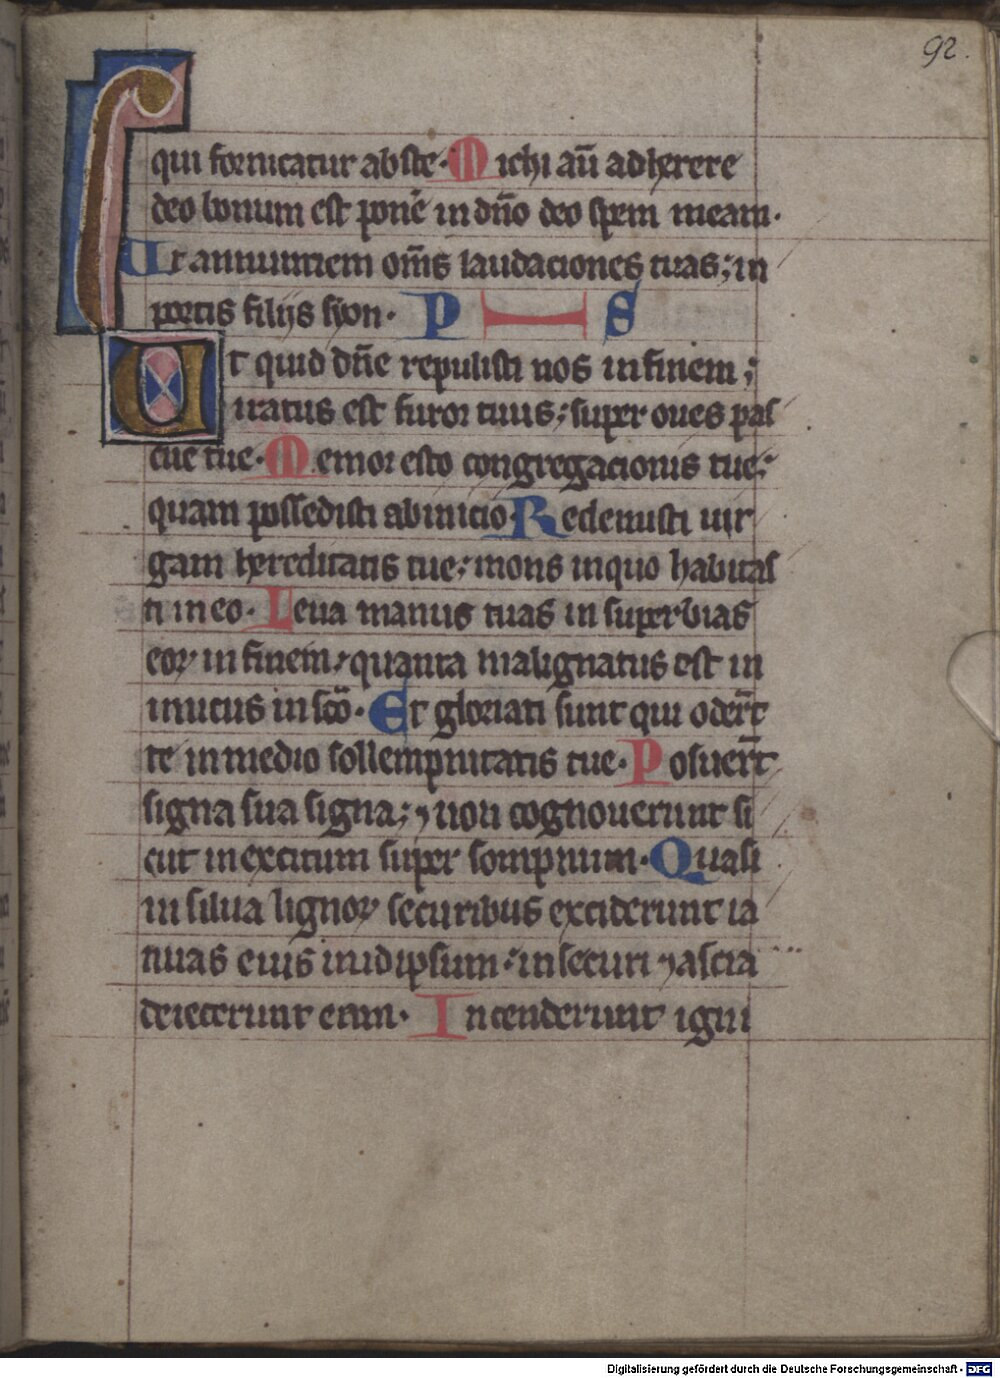 92.
qui fornicatur abste. Michi aū adherere
deo bonum est ponē in dn̄o deo spem meam.
Ut annuntiem om̄s laudaciones tuas; in
portis filijs syon. P I S
Ut quid dn̄e repulisti nos in finem;
iratus est furor tuus; super oues pas
cue tue. Memor esto congregacionis tue;
quam possedisti abinicio. Redemisti uir
gam hereditatis tue; mons inquo habitas
ti in eo. Leua manus tuas in superbias
eoꝝ in finem; quanta malignatus est in
imicus in sc̄o. Et gloriati sunt qui oder̄t
te in medio sollempnitatis tue. Posuer̄t
signa sua signa; ⁊ non cognouerunt si
cut in exitum super sompnum. Quasi
in silua lignoꝝ securibus exciderunt ia
nuas eius in id ipsum; in securi ⁊ ascia
deiecerunt eam. Incenderunt igni
Digitalisierung gefördert durch die Deutsche Forschungsgemeinschaft - DFG